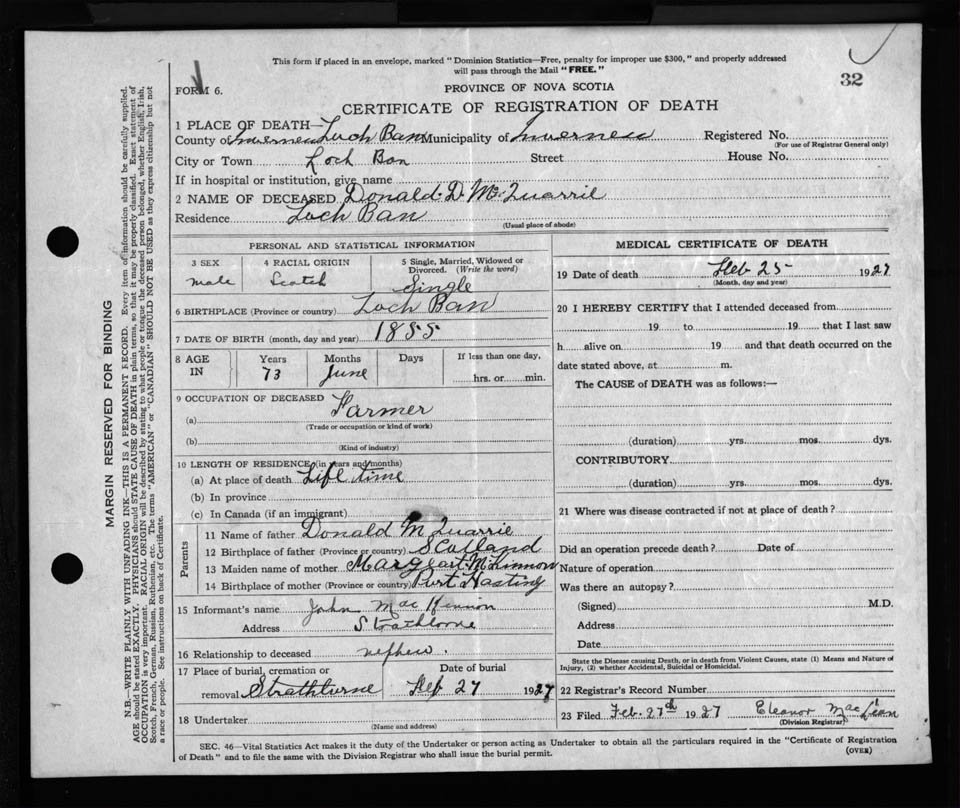 This form if placed in an envelope, marked "Dominion Statistics—Free, penalty for improper use $300," and properly addressed
will pass through the Mail "FREE."
32
FORM 6.
PROVINCE OF NOVA SCOTIA
CERTIFICATE OF REGISTRATION OF DEATH
1 PLACE OF DEATH—
County of Inverness Loch Ban Municipality of Inverness Registered No.
(For use of Registrar General only)
City or Town Loch Ban Street House No.
If in hospital or institution, give name
2 NAME OF DECEASED Donald. D. Mc Quarrie
Residence Loch Ban
(Usual place of abode)
PERSONAL AND STATISTICAL INFORMATION
3 SEX
male
4 RACIAL ORIGIN
Scotch
5 Single, Married, Widowed or
Divorced. (Write the word)
Single
6 BIRTHPLACE (Province or country) Loch Ban
7 DATE OF BIRTH (month, day and year) 1855
8 AGE IN
Years
73
Months
June
Days
If less than one day,
hrs. or min.
9 OCCUPATION OF DECEASED
(a) Farmer
(Trade or occupation or kind of work)
(b)
(Kind of industry)
10 LENGTH OF RESIDENCE (in years and months)
(a) At place of death Life time
(b) In province
(c) In Canada (if an immigrant)
Parents
11 Name of father Donald M Quarrie
12 Birthplace of father (Province or country) Scotland
13 Maiden name of mother Margeart McKinnon
14 Birthplace of mother (Province or country) Port Hasting
15 Informant's name John Mac Kinnon
Address Strathlorne
16 Relationship to deceased nephew.
17 Place of burial, cremation or
removal Strathlorne
Date of burial
Feb 27 1927
18 Undertaker
(Name and address)
MEDICAL CERTIFICATE OF DEATH
19 Date of death Feb 25 1927
(Month, day and year)
20 I HEREBY CERTIFY that I attended deceased from
19 to 19 that I last saw
h alive on 19 and that death occurred on the
date stated above, at m.
The CAUSE of DEATH was as follows:—
(duration) yrs. mos. dys.
CONTRIBUTORY
(duration) yrs. mos. dys.
21 Where was disease contracted if not at place of death?
Did an operation precede death? Date of
Nature of operation
Was there an autopsy?
(Signed) M.D.
Address
Date
State the Disease causing Death, or in death from Violent Causes, state (1) Means and Nature of
Injury, (2) whether Accidental, Suicidal or Homicidal.
22 Registrar's Record Number
23 Filed Feb. 27th 1927 Eleanor Mac Lean
(Division Registrar)
SEC. 46—Vital Statistics Act makes it the duty of the Undertaker or person acting as Undertaker to obtain all the particulars required in the "Certificate of Registration
of Death" and to file the same with the Division Registrar who shall issue the burial permit.
(OVER)
MARGIN RESERVED FOR BINDING
N.B.—WRITE PLAINLY WITH UNFADING INK—THIS IS A PERMANENT RECORD. Every item of information should be carefully supplied.
AGE should be stated EXACTLY. PHYSICIANS should STATE CAUSE OF DEATH in plain terms, so that it may be properly classified. Exact statement of
OCCUPATION is very important. RACIAL ORIGIN will be described by stating to what people or tongue the deceased person belonged, whether English, Irish,
Scotch, French, German, Russian, Ruthenian, etc. The terms "AMERICAN" or "CANADIAN" SHOULD NOT BE USED as they express citizenship but not
a race or people. See instructions on back of Certificate.